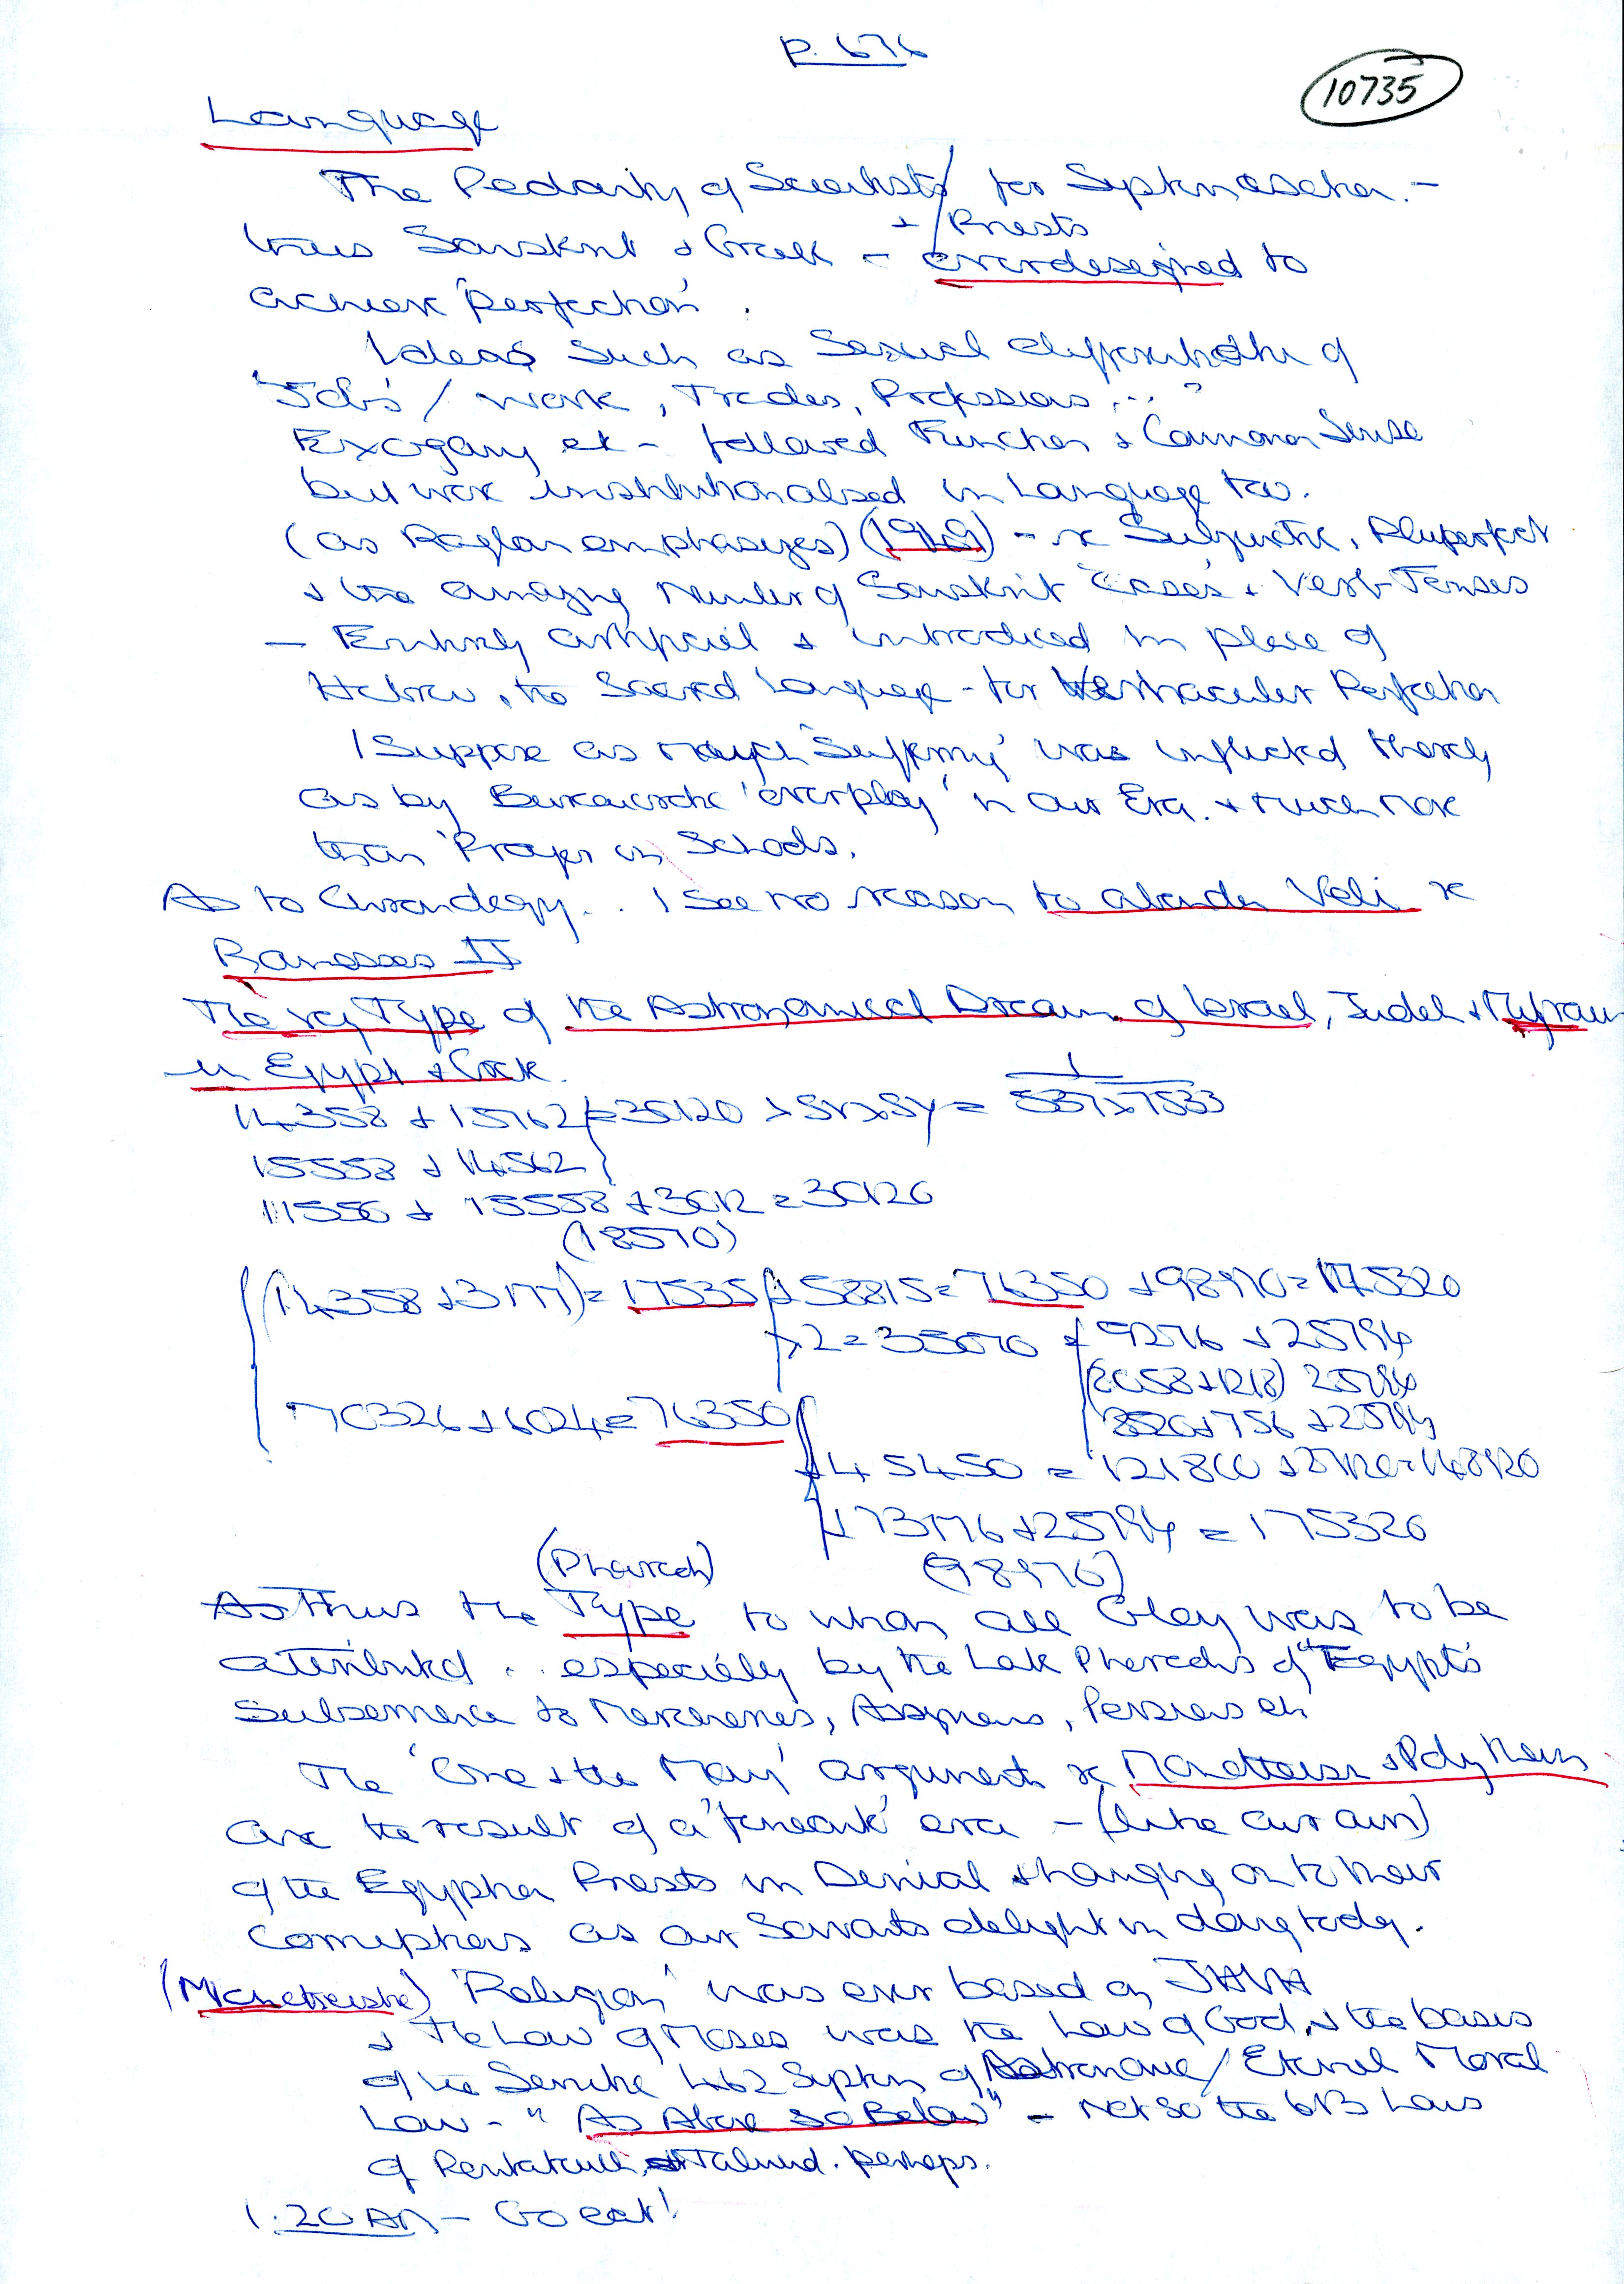 P. 676
10735
Language
The Pedantry of Scientists for Systemisation. -
+ / Priests
thus Sanskrit + Greek - overdesigned to
achieve 'perfection'.
Ideas such as Sexual differentiation of
'Jobs' / work, Trades, Professions ..."
Exogamy etc - followed Function & Common Sense
but were institutionalised in Language too.
(as Raglan emphasizes) (1949) - re Subjunctive, Pluperfect
+ the amazing Number of Sanskrit 'Cases' + Verb-Tenses
- Entirely artificial & introduced in place of
Hebrew, the Sacred Language - for Vernacular Perfection
I suppose as much 'Suffering' was inflicted thereby
as by Bureaucratic 'overplay' in our Era. + much more
than Prayer in Schools.
As to Chronology.. I see no reason to abandon Veli re
Ramesses II
The very Type of the Astronomical Dream of Israel, Judah +
in Egypt + Greek.
14358 + 15762 } = 30120 + SRxSY = 1
537x7533
15558 + 14562 }
11556 + 15558 + 3012 = 30126
(18570)
(14358 + 3177) = 17535 + 58815 = 76350 + 98970 = 175320
x 2 = 35070 { 9276 + 25794
(8058 + 1218) 25794
8520 + 756 + 25794
70326 + 6024 = 76350
+ 45450 = 121800 + = 148120
+ 73176 + 25794 = 175320
(Pharaoh) (98970)
Thus the Type to whom all Glory was to be
attributed .. especially by the Late Pharaohs of "Egypt's
Subservience to Mercenaries, Assyrians, Persians etc
The 'One & the Many' argument re Monotheism & Polytheism
are the result of a era - (like our own)
of the Egyptian Priests in Denial & hanging on to their
Corruptions as our Servants delight in doing today.
(Monotheistic) 'Religion' was ever based on JAVA
+ The Law of Moses was the Law of God, & the basis
of the 462 System of Astronomic / Eternal Moral
Law - "As Above So Below" - Not so the 613 Laws
of Pentateuch, Talmud. perhaps.
1.20 AM - Go eat!